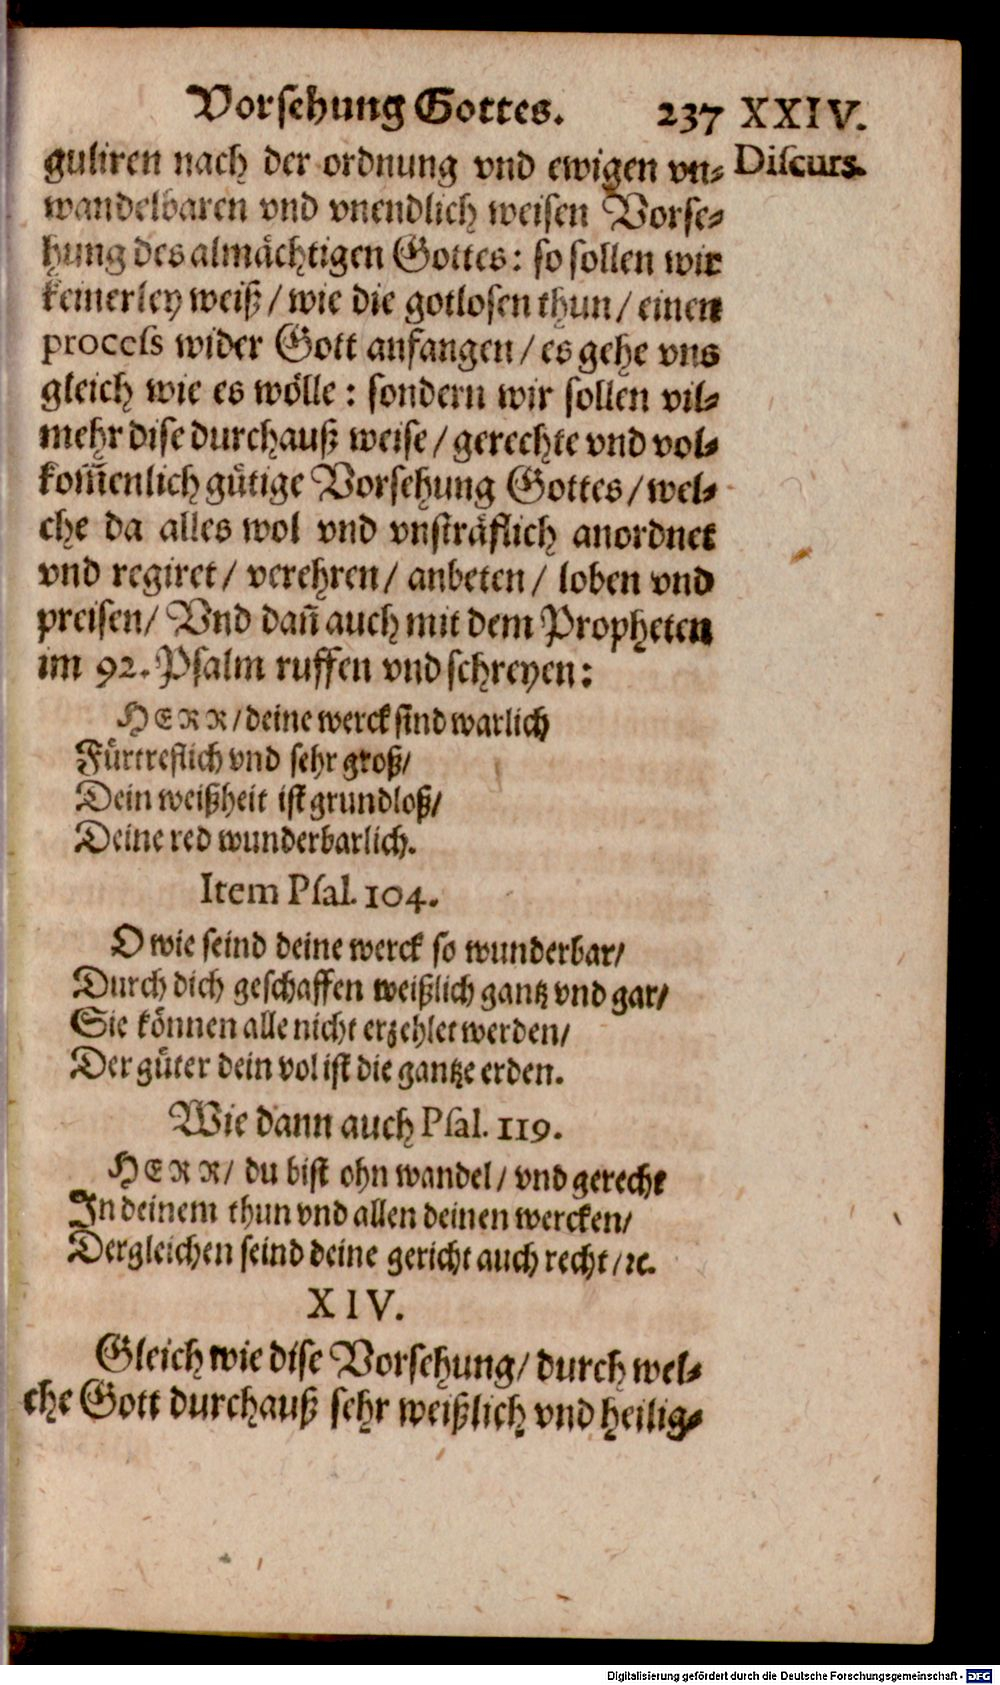 Vorsehung Gottes. 237 XXIV.
Discurs.
guliren nach der ordnung vnd ewigen vn⸗
wandelbaren vnd vnendlich weisen Vorse⸗
hung des almächtigen Gottes: so sollen wir
keinerley weiß / wie die gotlosen thun / einen
process wider Gott anfangen / es gehe vns
gleich wie es wölle: sondern wir sollen vil⸗
mehr dise durchauß weise / gerechte vnd vol⸗
kom̃enlich gütige Vorsehung Gottes / wel⸗
che da alles wol vnd vnsträflich anordnet
vnd regiret / verehren / anbeten / loben vnd
preisen / Vnd dañ auch mit dem Propheten
im 92. Psalm ruffen vnd schreyen:
HERR / deine werck sind warlich
Fürtreflich vnd sehr groß /
Dein weißheit ist grundloß /
Deine red wunderbarlich.
Item Psal. 104.
O wie seind deine werck so wunderbar /
Durch dich geschaffen weißlich gantz vnd gar /
Sie können alle nicht erzehlet werden /
Der güter dein vol ist die gantze erden.
Wie dann auch Psal. 119.
HERR / du bist ohn wandel / vnd gerecht
In deinem thun vnd allen deinen wercken /
Dergleichen seind deine gericht auch recht / ꝛc.
XIV.
Gleich wie dise Vorsehung / durch wel⸗
che Gott durchauß sehr weißlich vnd heilig⸗
Digitalisierung gefördert durch die Deutsche Forschungsgemeinschaft - DFG